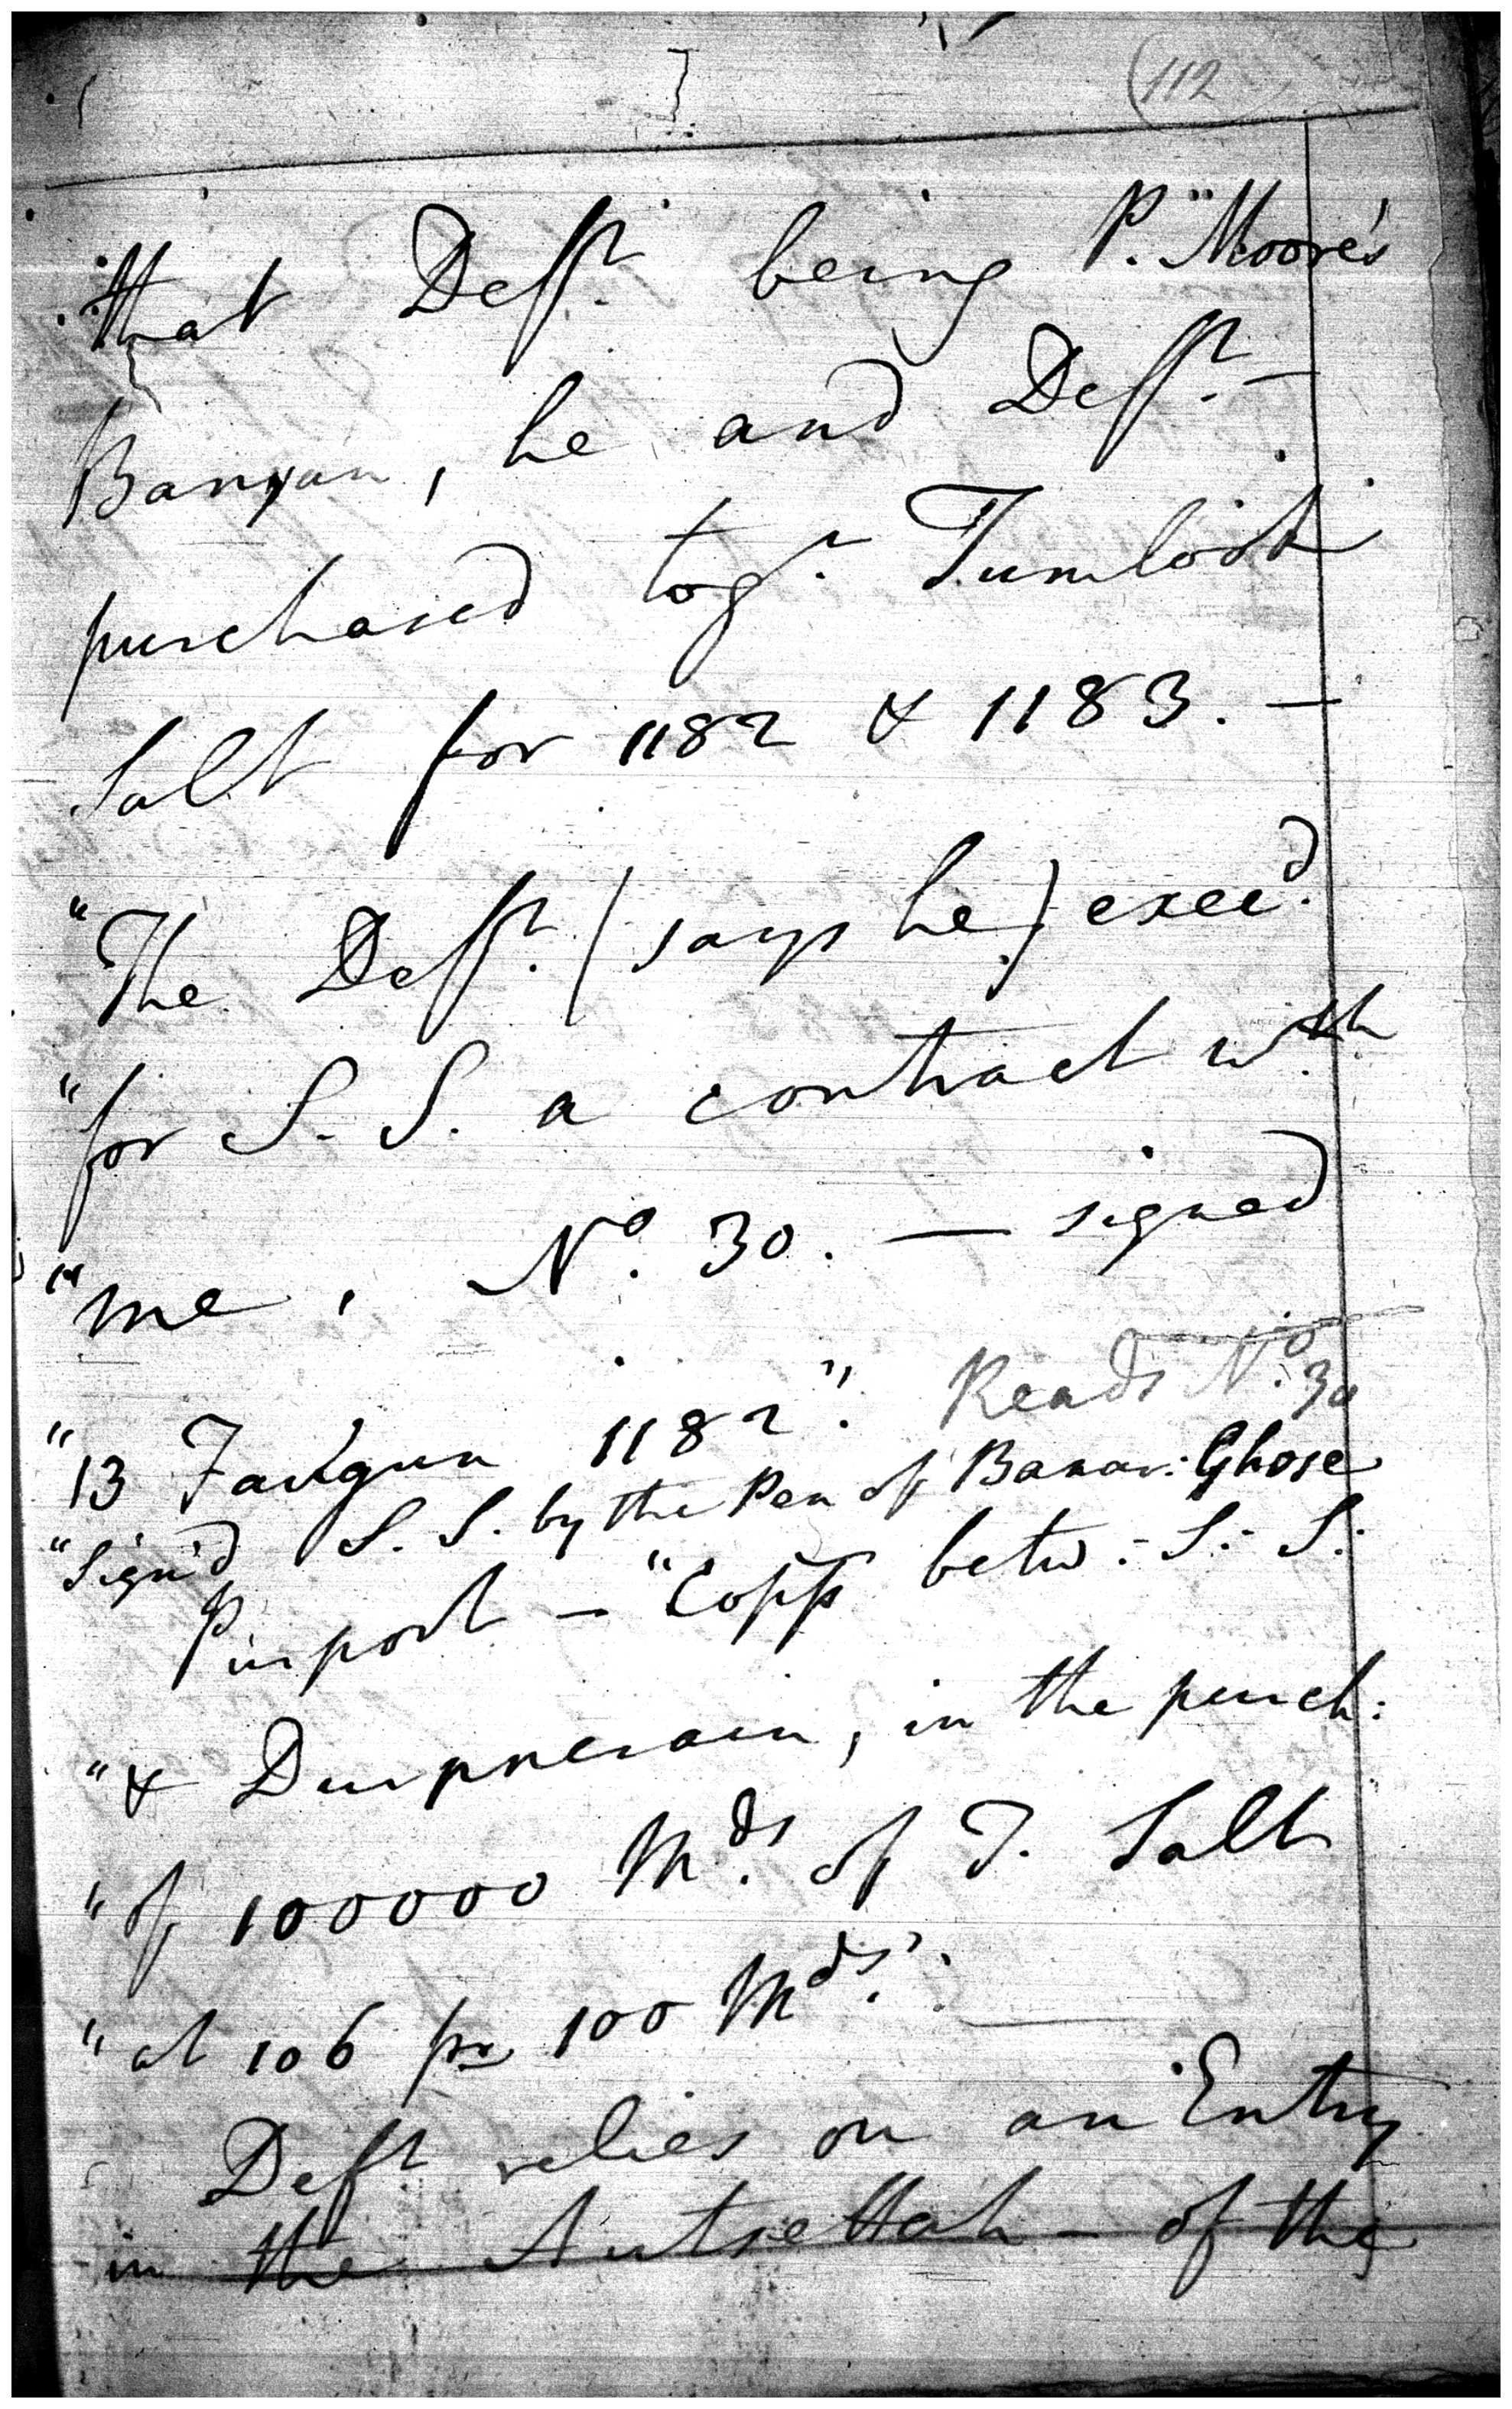 (112
that Defft. being P. Moore's
Banyan, he and Defft. —
purchased togr. Tumlook
Salt for 1182 & 1183. —
"The Defft. (says he) execd.
"for S. S. a contract wth.
"me, No. 30. — signed
"13 Faulgun 1182". Reads No. 30
"Sign'd S. S. by the Pen of Banar: Ghose
Purport — "Copp betw: S. S.
"& Durpnerain, in the purch:
"of 100000 Mds. of T. Salt
"at 106 pr 100 Mds."
Deft relies on an Entry
in the Autsettah — of the